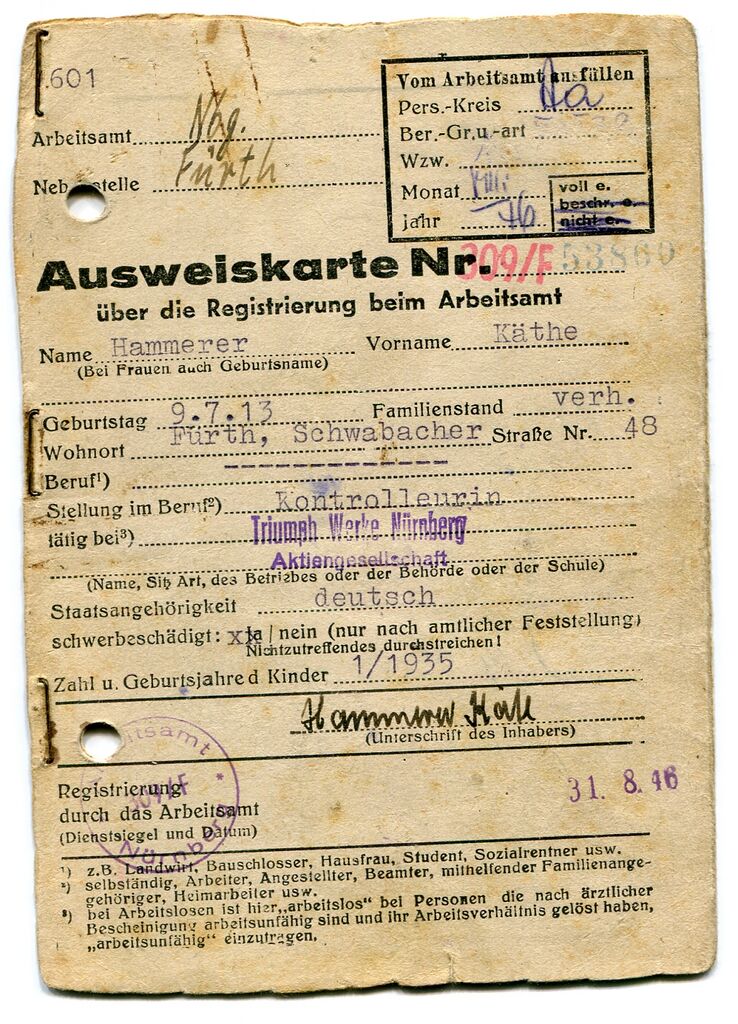 601
Vom Arbeitsamt ausfüllen
Pers.-Kreis Aa
Arbeitsamt Nbg.
Ber.-Gr.u.-art
Wzw.
Nebenstelle Fürth
Monat
voll e.
beschr. e.
jahr 46 nicht e.
Ausweiskarte Nr. 309/F 53860
über die Registrierung beim Arbeitsamt
Name Hammerer Vorname Käthe
(Bei Frauen auch Geburtsname)
Geburtstag 9.7.13 Familienstand verh.
Wohnort Fürth, Schwabacher Straße Nr. 48
Beruf¹) --------------
Stellung im Beruf²) Kontrolleurin
tätig bei³) Triumph Werke Nürnberg
Aktiengesellschaft
(Name, Sitz Art, des Betriebes oder der Behörde oder der Schule)
Staatsangehörigkeit deutsch
schwerbeschädigt: xxja/nein (nur nach amtlicher Feststellung)
Nichtzutreffendes durchstreichen!
Zahl u. Geburtsjahre d Kinder 1/1935
Hammerer Käte
(Unterschrift des Inhabers)
Arbeitsamt
309/F
Nürnberg
Registrierung
durch das Arbeitsamt
(Dienstsiegel und Datum)
31. 8. 46
¹) z.B. Landwirt, Bauschlosser, Hausfrau, Student, Sozialrentner usw.
²) selbständig, Arbeiter, Angestellter, Beamter, mithelfender Familienange-
gehöriger, Heimarbeiter usw.
³) bei Arbeitslosen ist hier „arbeitslos“ bei Personen die nach ärztlicher
Bescheinigung arbeitsunfähig sind und ihr Arbeitsverhältnis gelöst haben,
„arbeitsunfähig“ einzutragen.